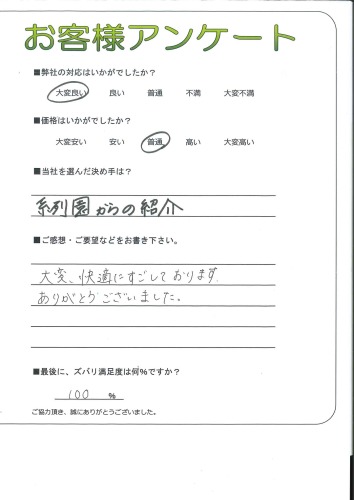 お客様アンケート
■弊社の対応はいかがでしたか？
大変良い 良い 普通 不満 大変不満
■価格はいかがでしたか？
大変安い 安い 普通 高い 大変高い
■当社を選んだ決め手は？
系列園からの紹介
■ご感想・ご要望などをお書き下さい。
大変、快適にすごしております。
ありがとうございました。
■最後に、ズバリ満足度は何％ですか？
100 %
ご協力頂き、誠にありがとうございました。